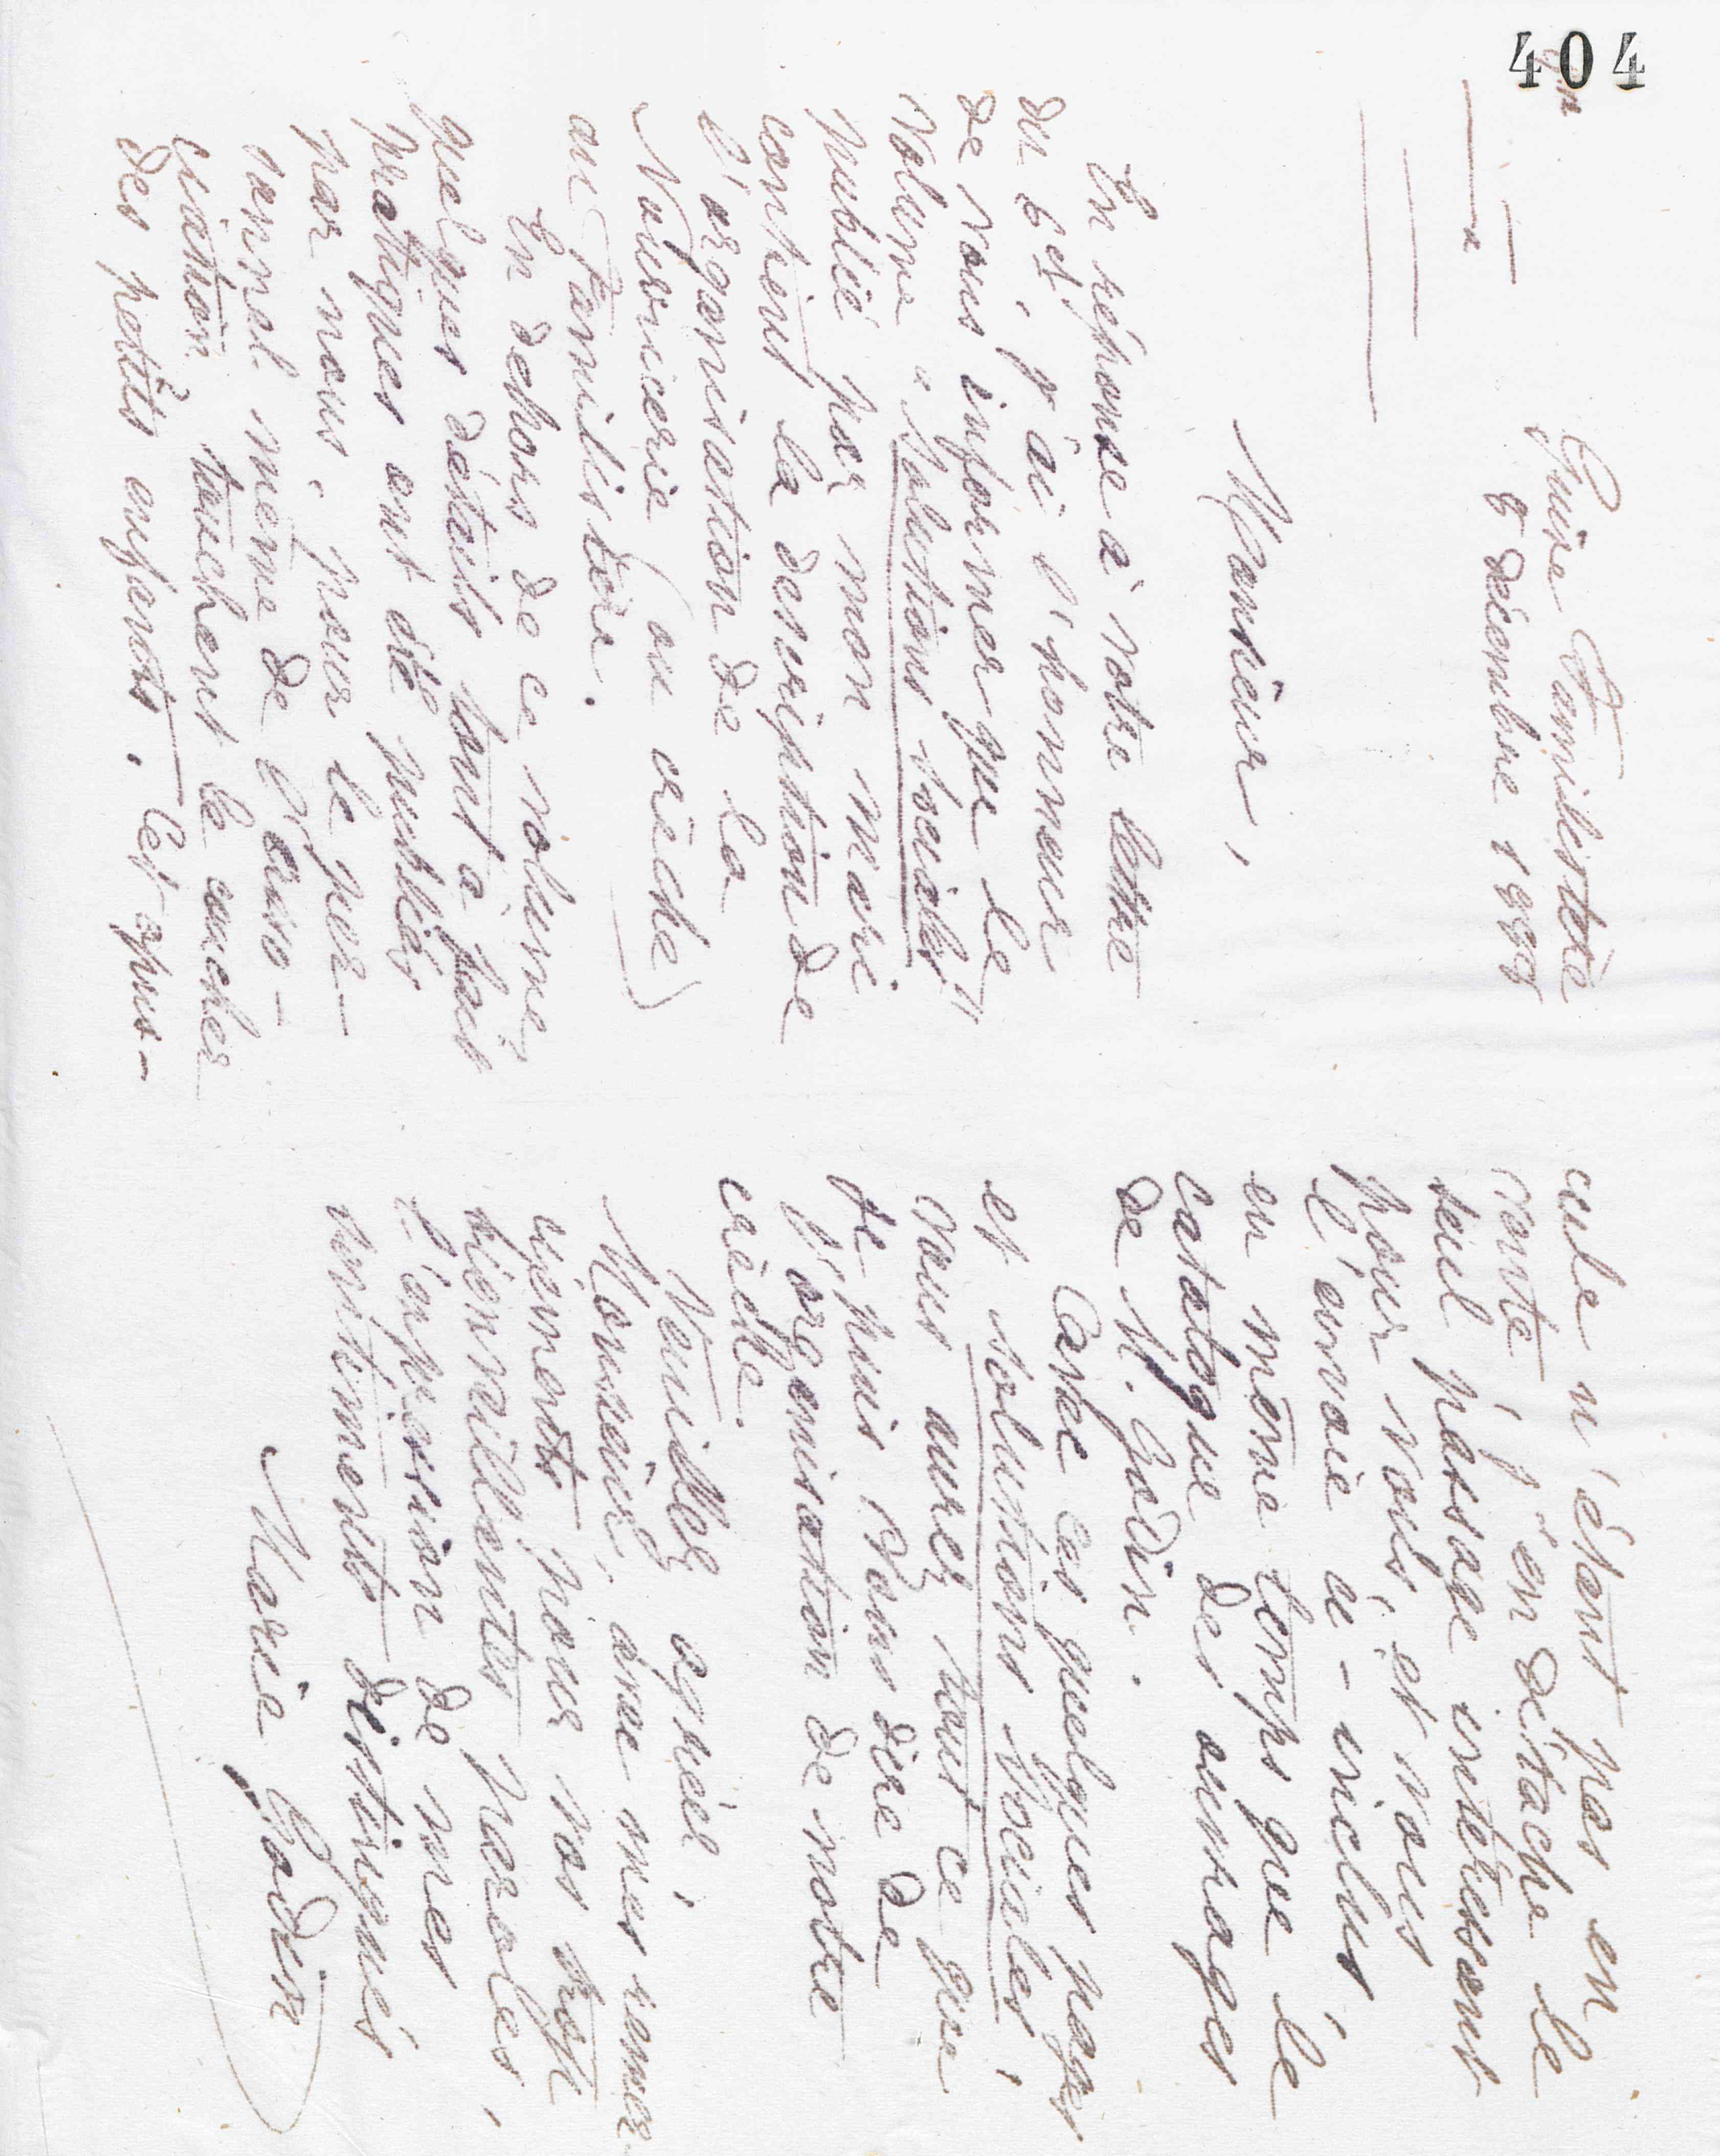 404
Guise Familistère
8 décembre 1888
Monsieur,
En réponse à votre lettre
du 6 ct, j'ai l'honneur
de vous informer que le
volume "Solutions sociales"
publié par mon mari
contient la description de
l'organisation de la
Nourricerie (ou crèche)
au Familistère.
En dehors de ce volume,
quelques détails tout à fait
pratiques ont été publiés
par nous, pour le per-
sonnel même de l'asso-
ciation, touchant le coucher
des petits enfants. Cet opus-
cule n'étant pas en
vente, j'en détache le
seul passage intéressant
pour vous, et vous
l'envoie ci-inclus,
en même temps que le
catalogue des ouvrages
de M. Godin.
Avec ces quelques pages
et Solutions Sociales,
vous aurez tout ce que
je puis vous dire de
l'organisation de notre
crèche.
Veuillez agréer,
Monsieur, avec mes remer-
ciements pour vos trop
bienveillantes paroles,
l'expression de mes
sentiments distingués
Marie Godin